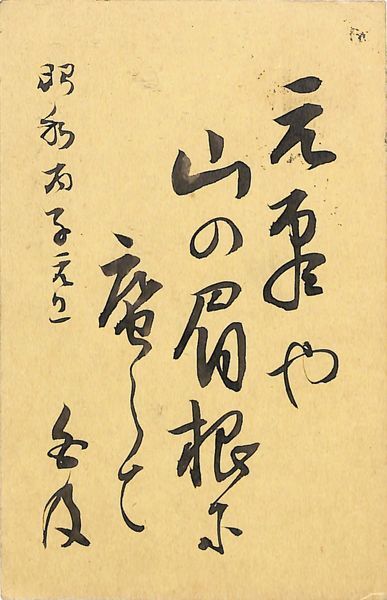 元
や
山の眉根に
庵して
昭和丙子元旦